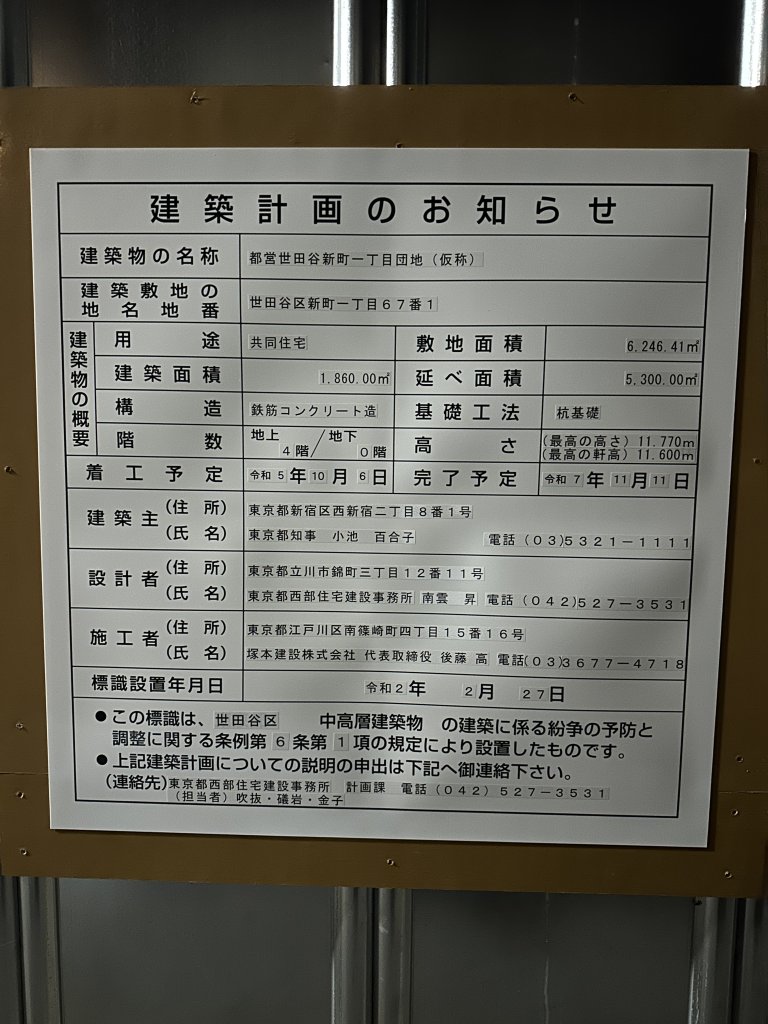 建築計画のお知らせ
建築物の名称 都営世田谷新町一丁目団地（仮称）
建築敷地の地名地番 世田谷区新町一丁目６７番１
建築物の概要
用途 共同住宅 敷地面積 6,246.41㎡
建築面積 1,860.00㎡ 延べ面積 5,300.00㎡
構造 鉄筋コンクリート造 基礎工法 杭基礎
階数 地上 4階／地下 0階 高さ (最高の高さ) 11.770m
(最高の軒高) 11.600m
着工予定 令和 5年 10月 6日 完了予定 令和 7年 11月 11日
建築主 (住所) 東京都新宿区西新宿二丁目８番１号
(氏名) 東京都知事 小池 百合子 電話 (０３)５３２１－１１１１
設計者 (住所) 東京都立川市錦町三丁目１２番１１号
(氏名) 東京都西部住宅建設事務所 南雲 昇 電話 (０４２)５２７－３５３１
施工者 (住所) 東京都江戸川区南篠崎町四丁目１５番１６号
(氏名) 塚本建設株式会社 代表取締役 後藤 高 電話(０３)３６７７－４７１８
標識設置年月日 令和２年 ２月 ２７日
●この標識は、世田谷区 中高層建築物 の建築に係る紛争の予防と
調整に関する条例第 6 条第 1 項の規定により設置したものです。
●上記建築計画についての説明の申出は下記へ御連絡下さい。
(連絡先)東京都西部住宅建設事務所 計画課 電話（０４２）５２７－３５３１
（担当者）吹抜・礒岩・金子